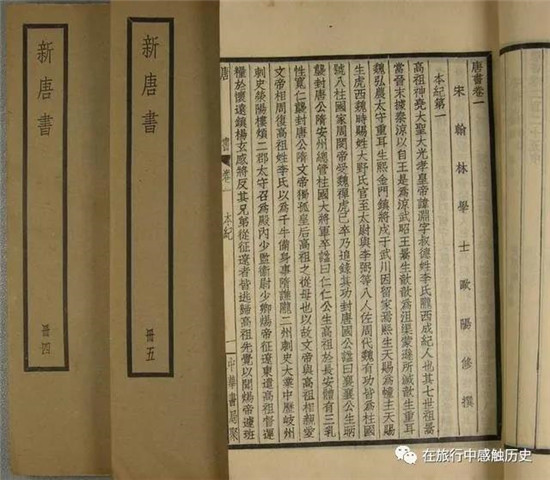 新唐書
冊四
新唐書
冊五
唐書卷一
宋翰林學士歐陽修撰
本紀第一
高祖神堯大聖大光孝皇帝諱淵字叔德姓李氏隴西成紀人也其七世祖暠
當晉末據秦涼以自王是為涼武昭王暠生歆歆為沮渠蒙遜所滅歆生重耳
魏弘農太守重耳生熙金門鎮將戍于武川因留家焉熙生天賜為幢主天賜
生虎西魏時賜姓大野氏官至太尉與李弼等八人佐周代魏有功皆為柱國
號八柱國家周閔帝受魏禪虎已卒乃追錄其功封唐國公諡曰襄襄公生昞
襲封唐公隋安州總管柱國大將軍卒諡曰仁仁公生高祖於長安體有三乳
性寬仁襲封唐公隋文帝獨孤皇后高祖之從母也以故文帝與高祖相親愛
文帝相周復高祖姓李氏以為千牛備身事隋譙隴二州刺史大業中歷岐州
刺史滎陽樓煩二郡太守召為殿內少監衛尉少卿煬帝征遼東遣高祖督運
糧於懷遠鎮楊玄感將反其兄弟從征遼者皆逃歸高祖先覺以聞煬帝遽班
唐書卷一本紀一中華書局聚
在旅行中感触历史